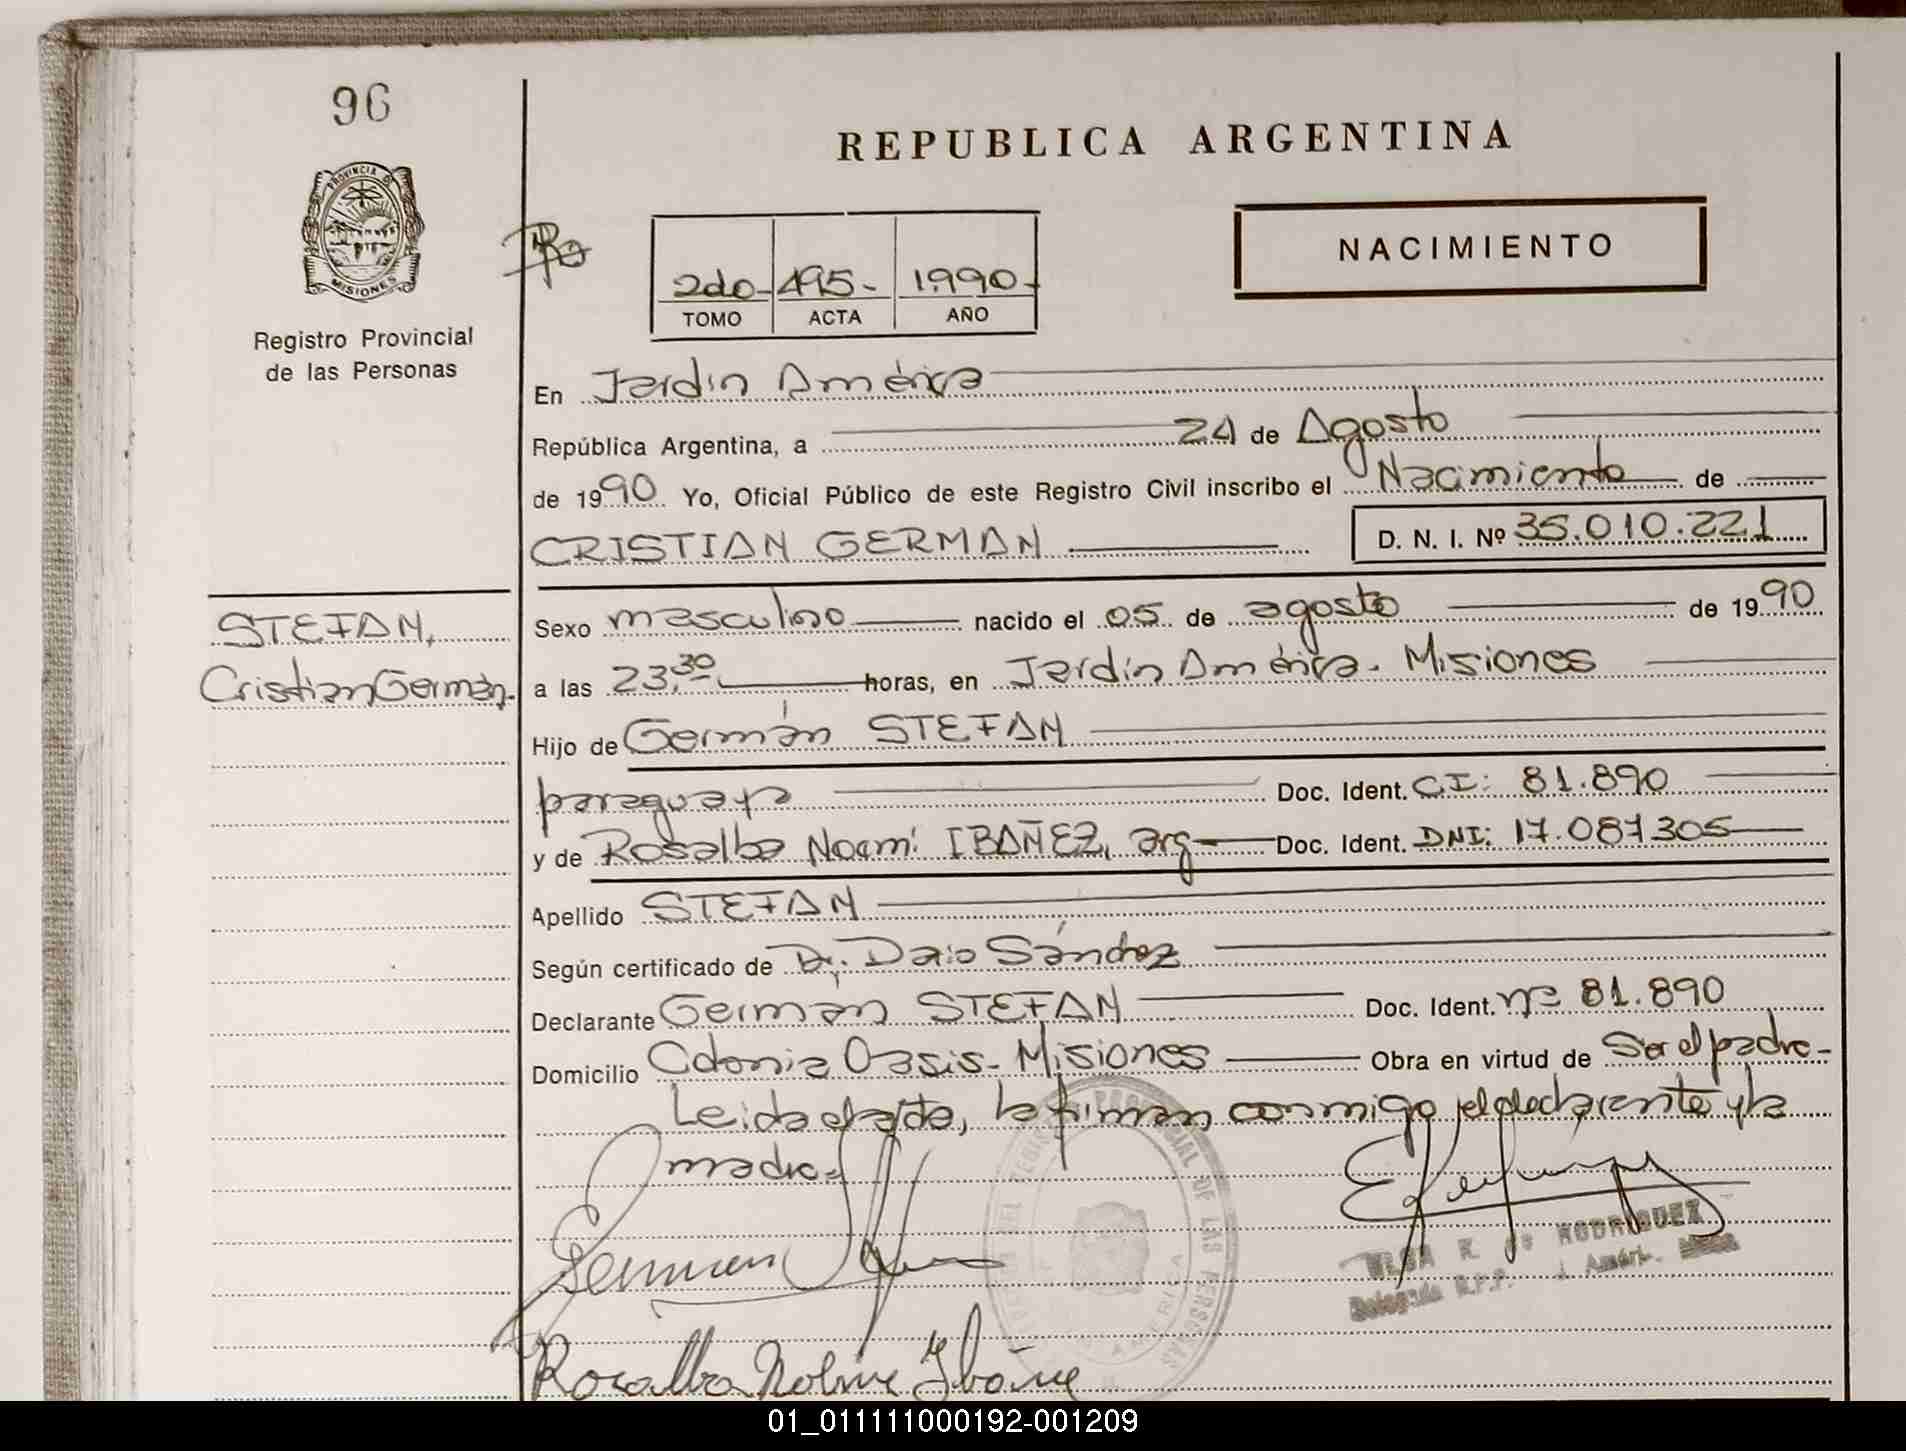 96
PROVINCIA DE
MISIONES
Registro Provincial
de las Personas
REPUBLICA ARGENTINA
NACIMIENTO
2do- 495- 1.990-
TOMO ACTA AÑO
En Jardin América
República Argentina, a 24 de Agosto
de 1990 Yo, Oficial Público de este Registro Civil inscribo el Nacimiento de
CRISTIAN GERMAN D. N. I. Nº 35.010.221
STEFAN,
Cristian Germán.
Sexo masculino nacido el 05 de agosto de 1990
a las 23,30 horas, en Jardín América. Misiones
Hijo de Germán STEFAN
paraguayo Doc. Ident. CI: 81.890
y de Rosalba Noemí IBAÑEZ, arg Doc. Ident. DNI: 17.087.305
Apellido STEFAN
Según certificado de Dr. Dario Sánchez
Declarante Germán STEFAN Doc. Ident. nº 81.890
Domicilio Colonia Oasis. Misiones Obra en virtud de Ser el padre-
Leida el acta, la firman conmigo, el declarante y la
madre=
German
RODRIGUEZ
Delegada R.P.P.
AMERICA
Rosalba
01_011111000192-001209